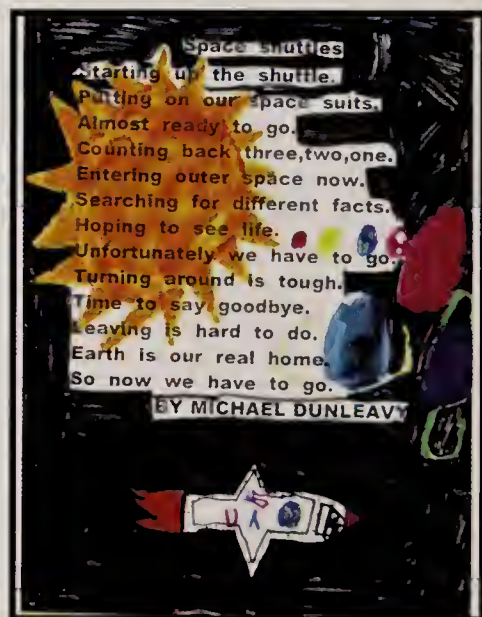 Space shuttles
Starting up the shuttle.
Putting on our space suits.
Almost ready to go.
Counting back three,two,one.
Entering outer space now.
Searching for different facts.
Hoping to see life.
Unfortunately we have to go.
Turning around is tough.
Time to say goodbye.
Leaving is hard to do.
Earth is our real home.
So now we have to go.
BY MICHAEL DUNLEAVY